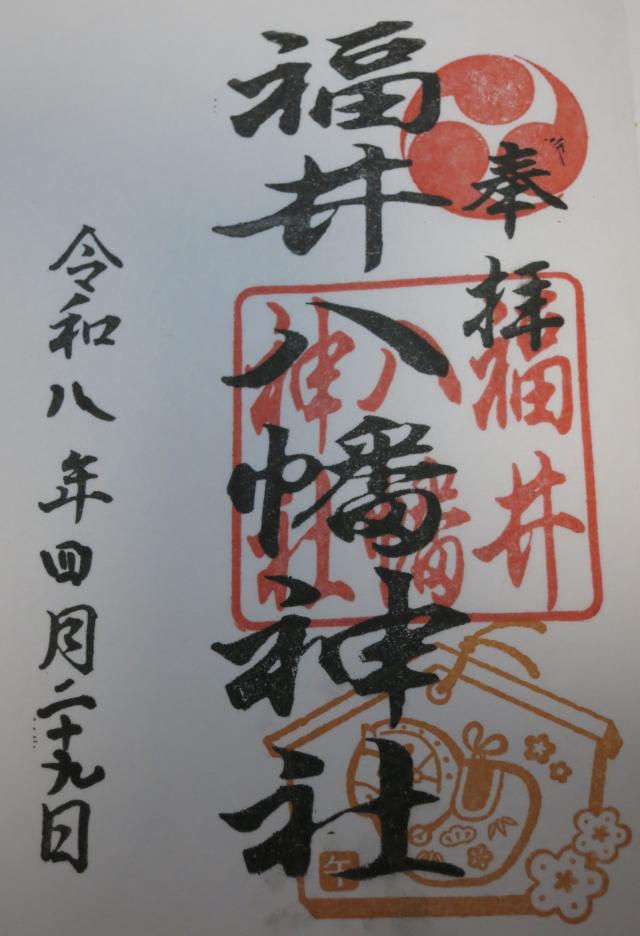 奉拝
福井八幡神社
福井
八幡
神社
午
令和八年四月二十九日